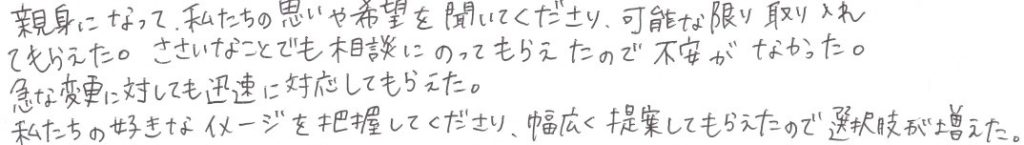 親身になって、私たちの思いや希望を聞いてくださり、可能な限り取り入れ
てもらえた。ささいなことでも相談にのってもらえたので不安がなかった。
急な変更に対しても迅速に対応してもらえた。
私たちの好きなイメージを把握してくださり、幅広く提案してもらえたので選択肢が増えた。